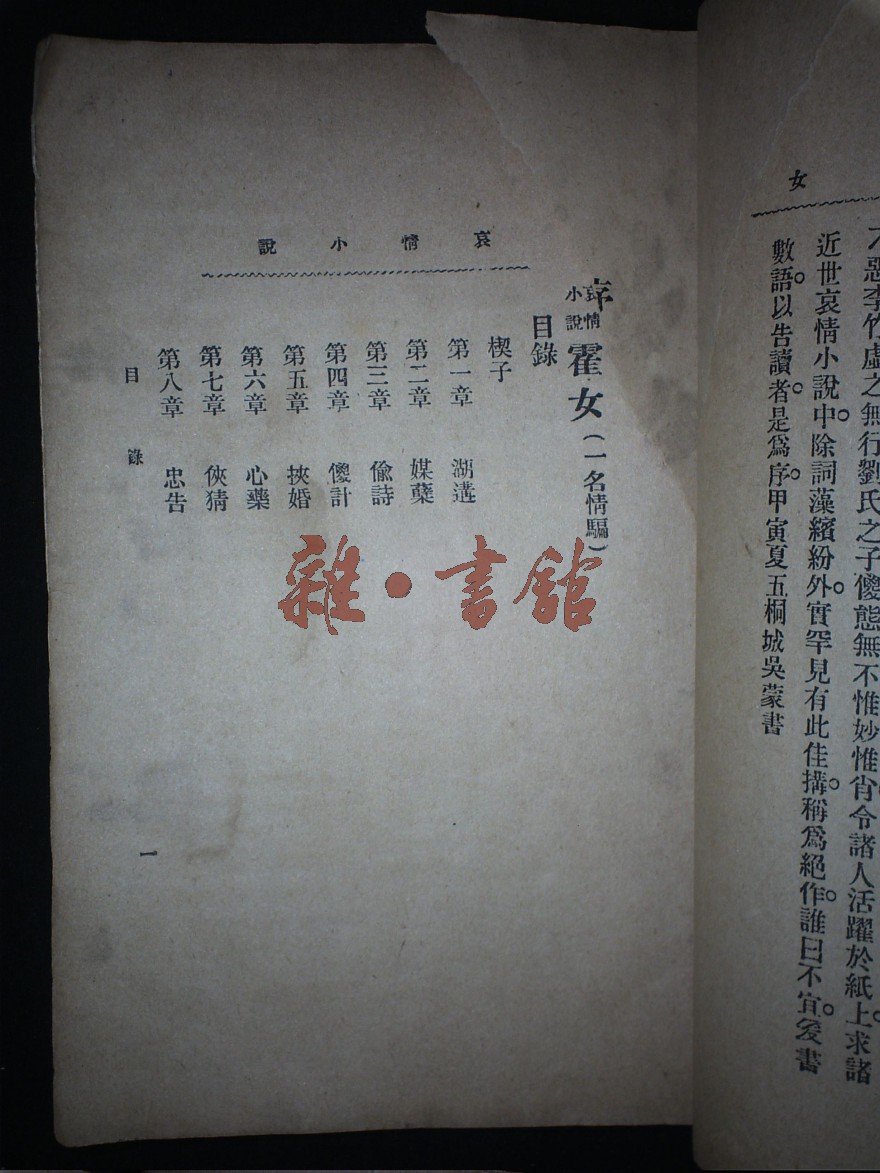 女
惡李竹虛之無行劉氏之子傻態無不惟妙惟肖令諸人活躍於紙上求諸
近世哀情小說中除詞藻繽紛外實罕見有此佳搆稱爲絕作誰曰不宜爰書
數語以告讀者是爲序甲寅夏五桐城吳蒙書
哀情小說
哀情小說 霍女(一名情騙)
目錄
楔子
第一章 湖遘
第二章 媒蘗
第三章 偸詩
第四章 傻計
第五章 挾婚
第六章 心藥
第七章 俠猜
第八章 忠告
目錄
一
雜·書館